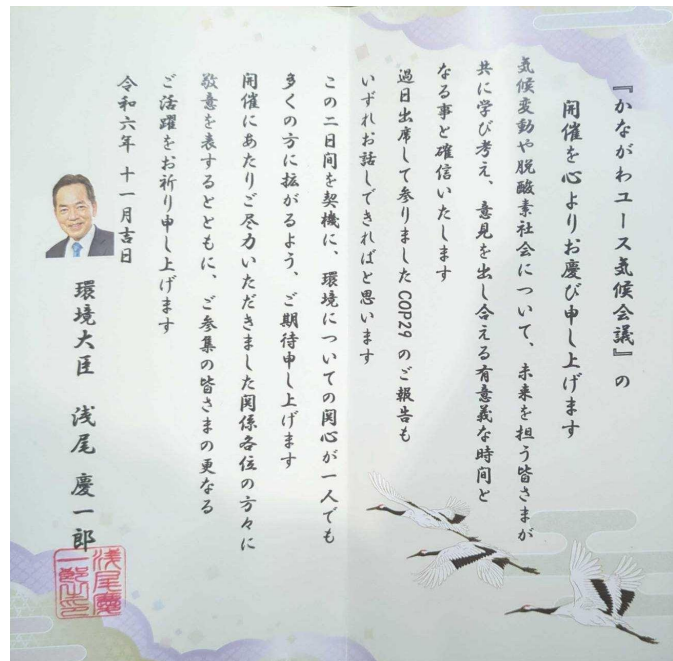 『かながわユース気候会議』の
開催を心よりお慶び申し上げます
気候変動や脱酸素社会について、未来を担う皆さまが
共に学び考え、意見を出し合える有意義な時間と
なる事と確信いたします
過日出席して参りましたCOP29のご報告も
いずれお話しできればと思います
この二日間を契機に、環境についての関心が一人でも
多くの方に拡がるよう、ご期待申し上げます
開催にあたりご尽力いただきました関係各位の方々に
敬意を表するとともに、ご参集の皆さまの更なる
ご活躍をお祈り申し上げます
令和六年 十一月吉日
環境大臣 浅尾 慶一郎
浅尾慶
一郎之印